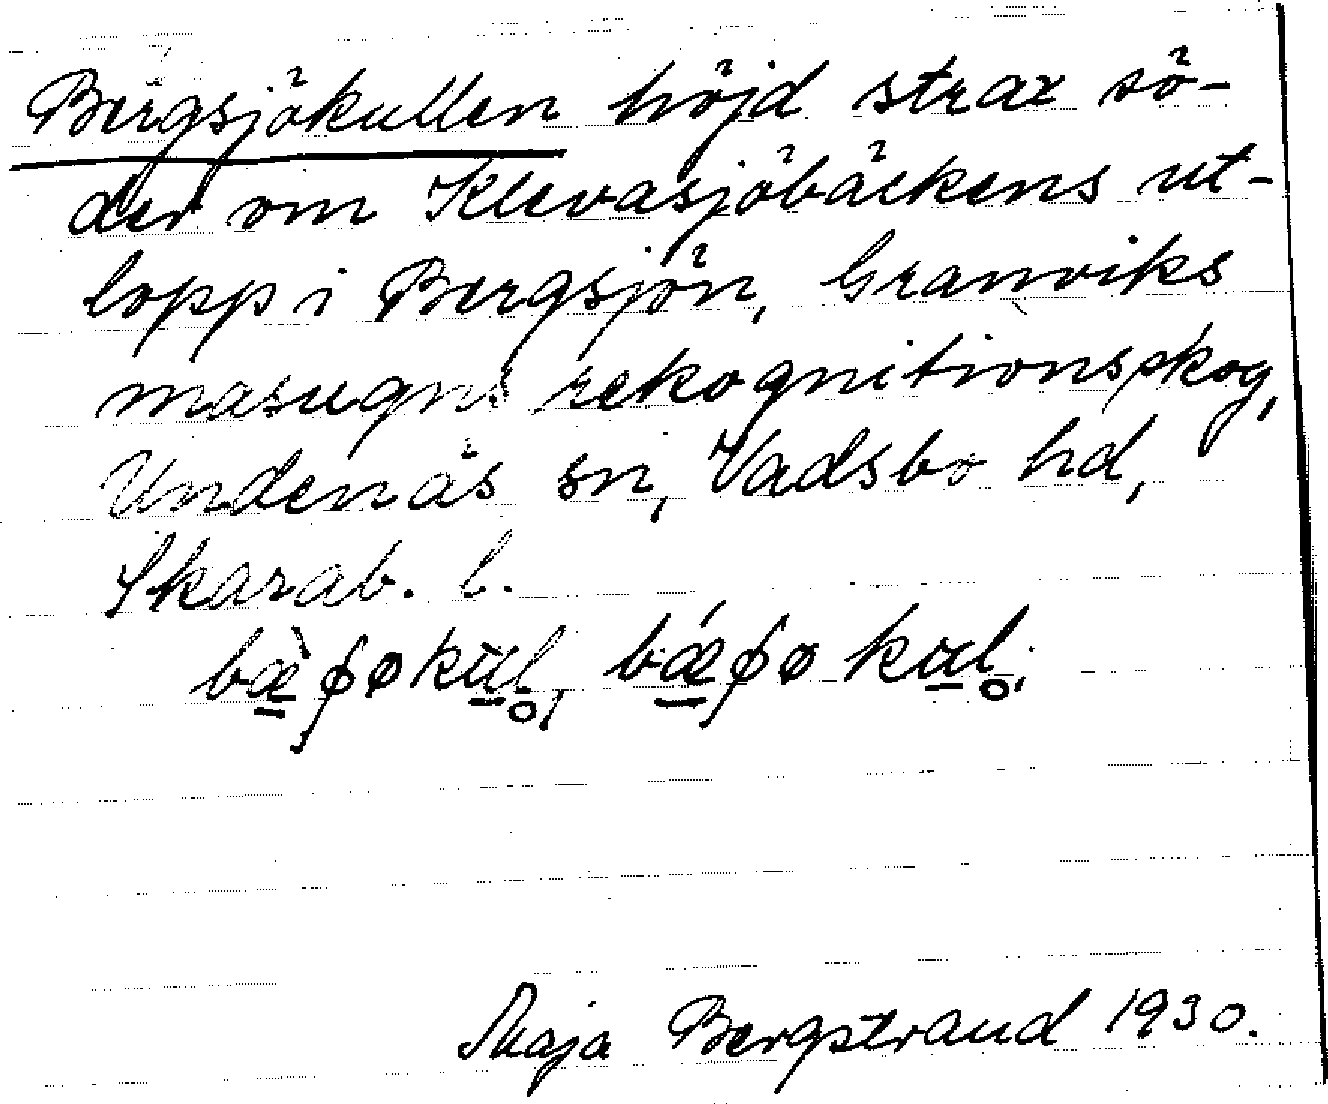 Bergsjökullen höjd strax sö-
der om Klevasjöbäckens ut-
lopp i Bergsjön, Granviks
masugns rekognitionsskog,
Undenäs sn, Vadsbo hd,
Skarab. l.
Maja Bergstrand 1930.